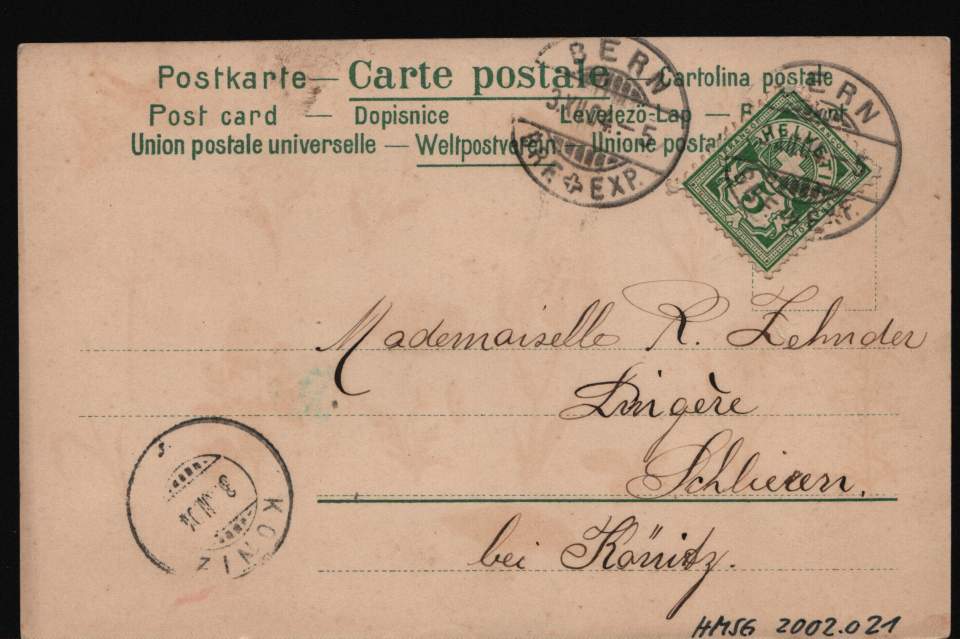 Postkarte — Carte postale Cartolina postale
Post card — Dopisnice Levelező-Lap —
Union postale universelle — Weltpostverein — Unione posta
BERN
3.XII.04.- 5
BRF. EXP.
BERN
5
BRF. EXP.
FRANCO
HELVETIA
5
Mademoiselle R. Zehnder
Lingère
Schlieren,
bei Könitz.
KÖNIZ
3.XII.04
HMSG 2002.021